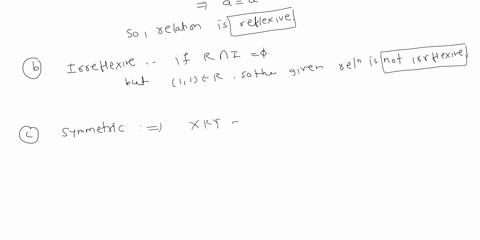 ⇒ a = a
So, relation is reflexive
(b) Irreflexive :- if R ∩ I = ϕ
but (1,1) ∈ R, so the given relⁿ is not irreflexive
(c) Symmetric :⇒ XRY -